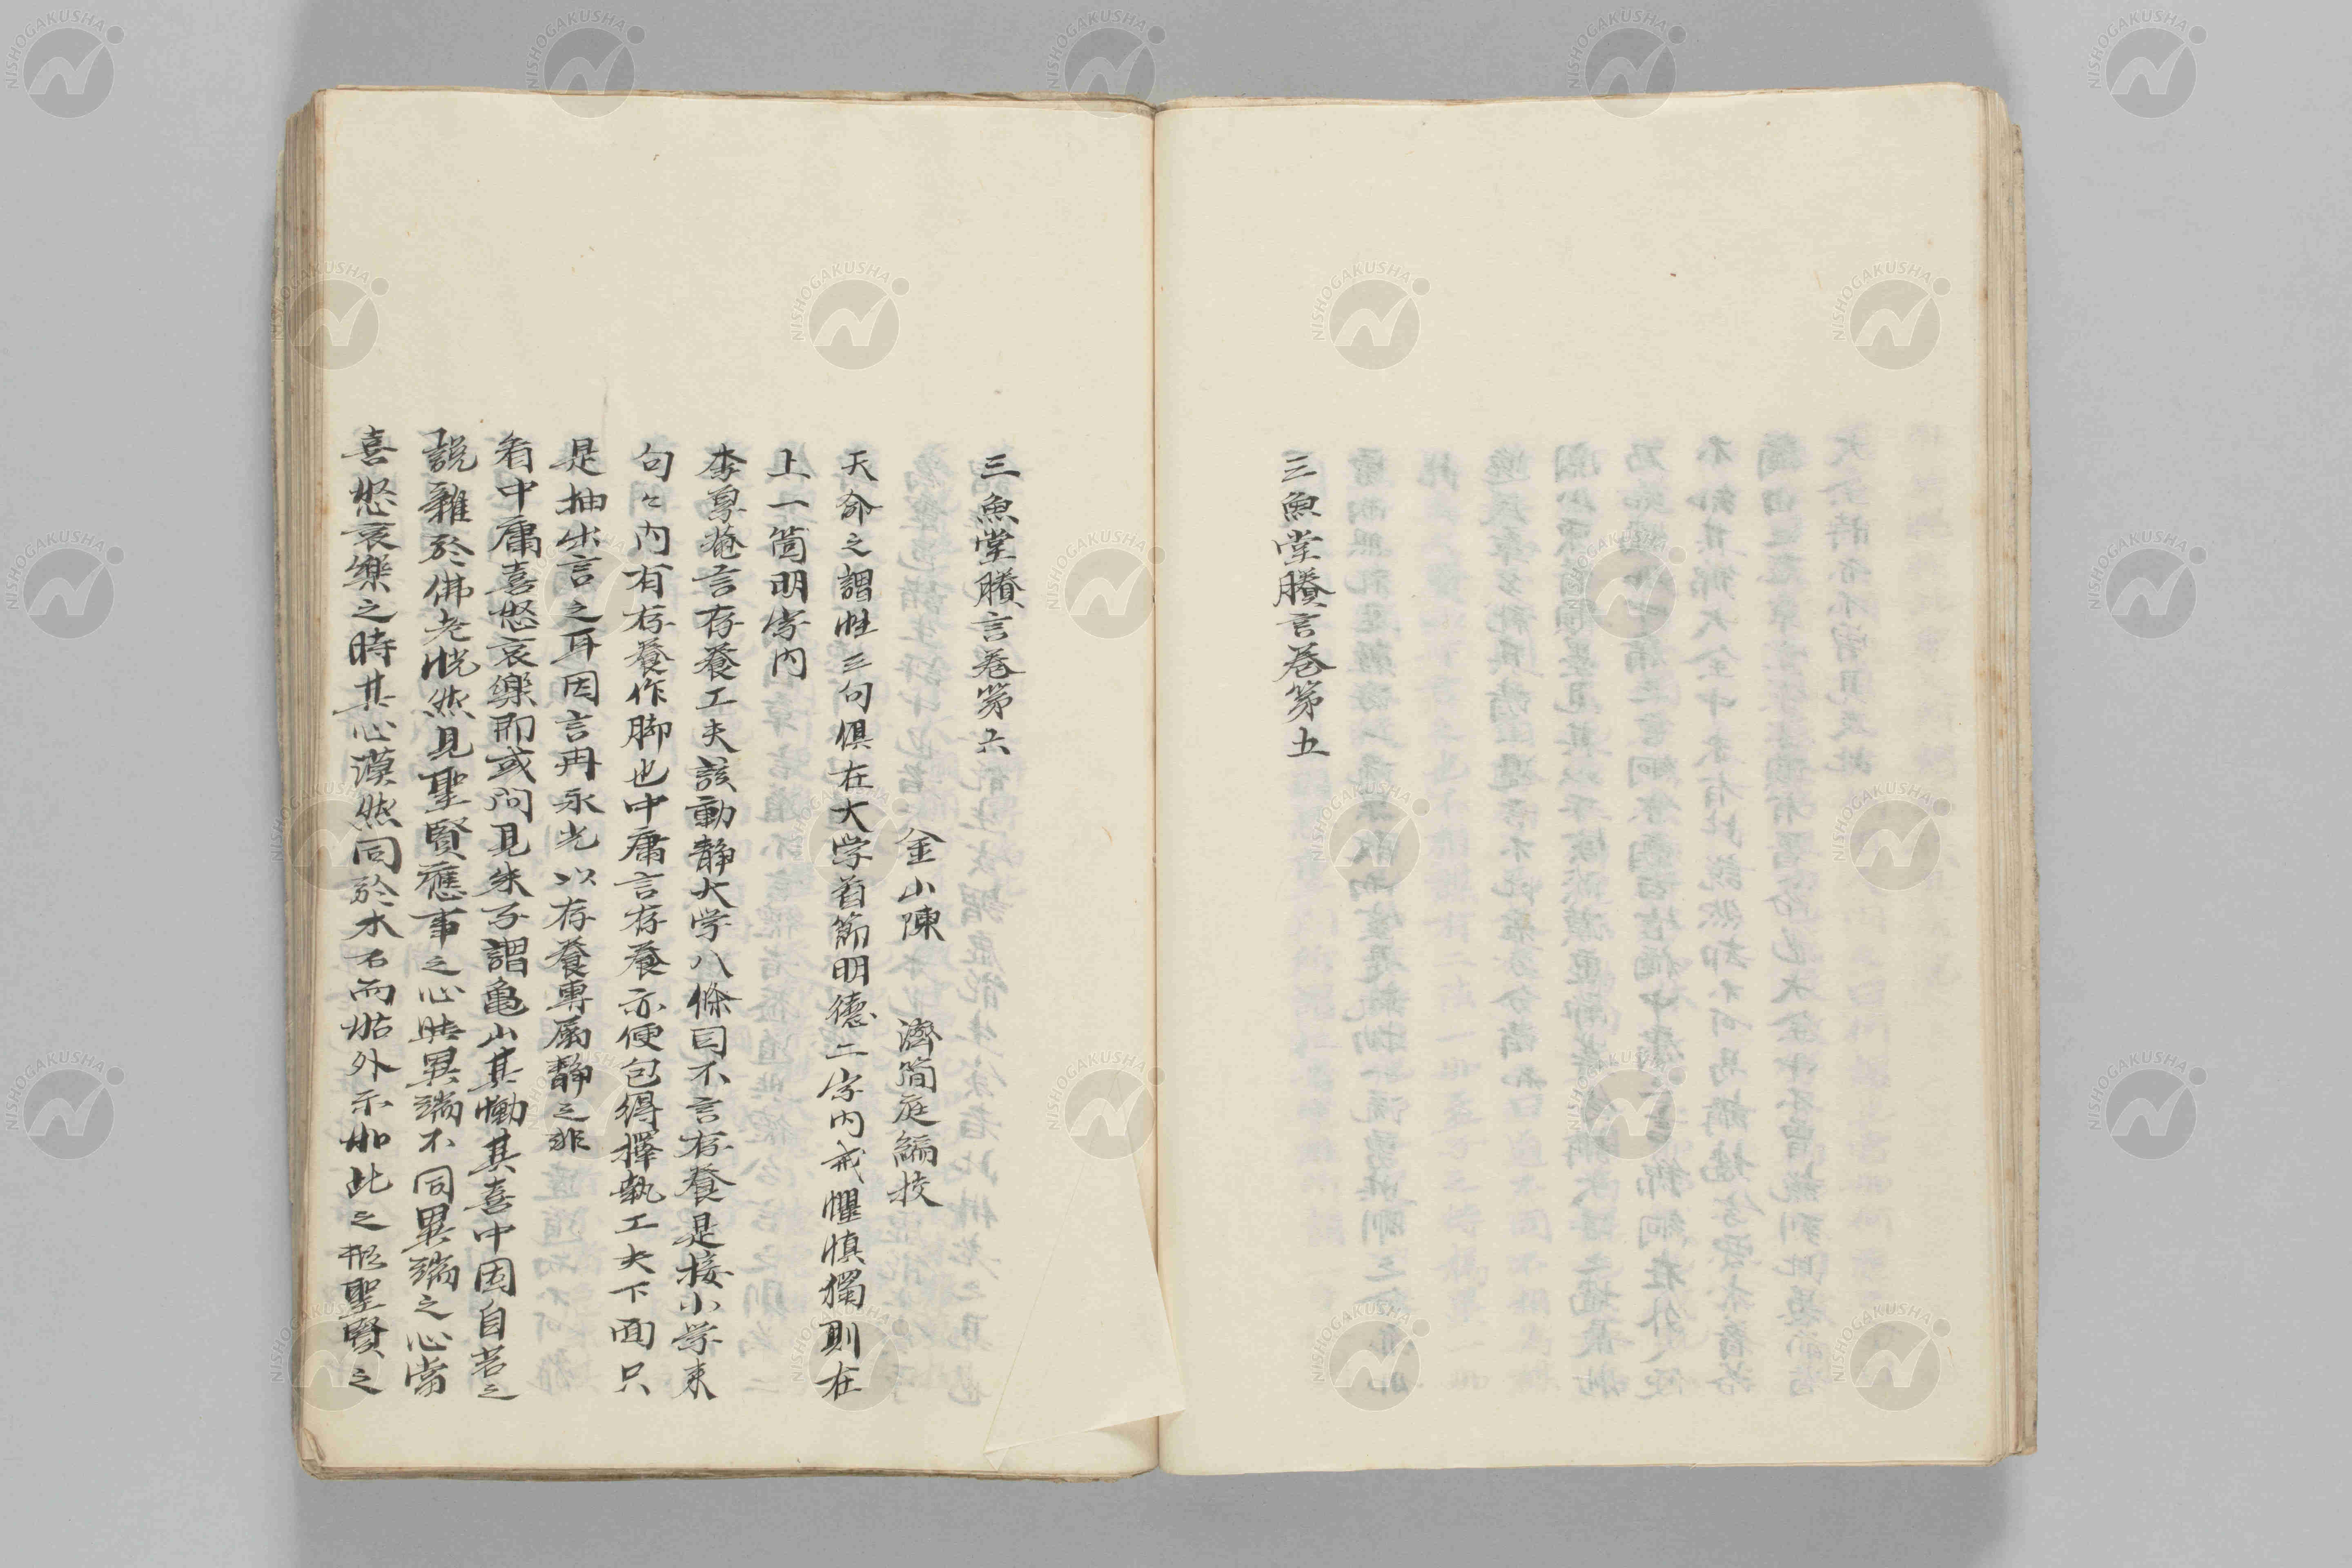 三魚堂賸言卷第五
三魚堂賸言卷第六
金山陳 濟簡庭編校
天命之謂性三句俱在大学首節明德二字内戒懼慎獨則在
上一箇明字内
李皐菴言存養工夫該動靜大学八條目不言存養是接小学来
句々内有存養作脚也中庸言存養亦便包得擇執工夫下面只
是抽出言之耳因言冉永光以存養專屬靜之非
看中庸喜怒哀樂即或问見朱子謂龜山其慟其喜中固自若之
説雜於佛老恍然見聖賢應事之心與異端不同異端之心當
喜怒哀樂之時其心漠然同於木石而姑外示如此之形聖賢之
NISHOGAKUSHA